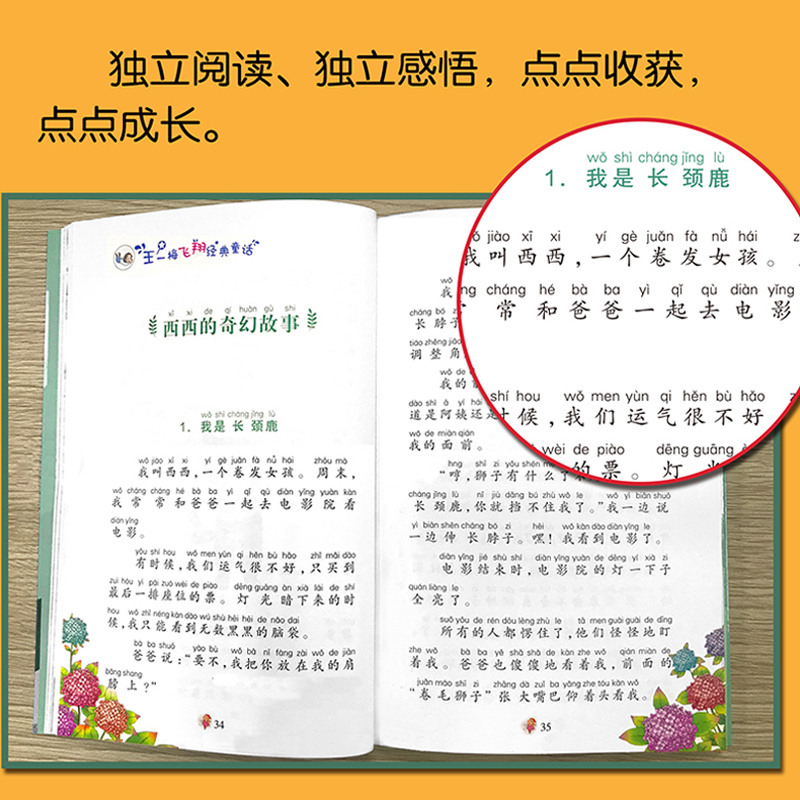 独立阅读、独立感悟，点点收获，
点点成长。
王一梅飞翔经典童话
xī xi de qí huàn gù shi
西西的奇幻故事
wǒ shì cháng jǐng lù
1. 我是 长 颈鹿
wǒ jiào xī xi yí gè juǎn fà nǚ hái zhōu mò
我叫西西，一个卷发女孩。周末，
wǒ cháng cháng hé bà ba yì qǐ qù diàn yǐng yuàn kàn
我 常 常 和 爸 爸 一 起 去 电 影 院 看
diàn yǐng
电影。
yǒu shí hou wǒ men yùn qi hěn bù hǎo zhǐ mǎi dào
有时候，我们运气很不好，只买到
zuì hòu yì pái zuò wèi de piào dēng guāng àn xià lái de shí
最后一排座位的票。灯 光 暗下来的时
hou wǒ zhǐ néng kàn dào wú shù hēi hēi de nǎo dai
候，我只能看到无数黑黑的脑袋。
bà ba shuō yào bù wǒ bǎ nǐ fàng zài wǒ de jiān
爸爸说：“要不，我把你放在我的肩
bǎng shang
膀上？”
34
wǒ
我
cháng bó zi
长脖子
tiáo zhěng jiǎo
调整角
wǒ de
我的
dào shì ā yí hái shi
道是阿姨还是
wǒ de miàn qián
我的面前。
hng shī zi yǒu shén me
“哼，狮子有什么了
cháng jǐng lù nǐ jiù dǎng bú zhù wǒ le wǒ yì biān shuō
长颈鹿，你就挡不住我了。”我一边说
yì biān shēn cháng bó zi hēi wǒ kàn dào diàn yǐng le
一边伸 长 脖子。嘿！我看到电影了。
diàn yǐng jié shù shí diàn yǐng yuàn de dēng yí xià zi
电影结束时，电影院的灯一下子
quán liàng le
全亮了。
suǒ yǒu de rén dōu lèng zhù le tā men guài guài de dīng
所有的人都愣住了，他们怪怪地盯
zhe wǒ bà ba yě shǎ shǎ de kàn zhe wǒ qián miàn de
着我。爸爸也傻傻地看着我，前面的
juǎn máo shī zi zhāng dà zuǐ ba yǎng zhe tóu kàn wǒ
“卷毛狮子”张大嘴巴仰着头看我。
35
wǒ shì cháng jǐng lù
1. 我是 长 颈鹿
jiào xī xi yí gè juǎn fà nǚ hái
我叫西西，一个卷发女孩。
cháng hé bà ba yì qǐ qù diàn yǐng
常 和 爸 爸 一 起 去 电 影
shí hou wǒ men yùn qi hěn bù hǎo
时候，我们运气很不好
wèi de piào dēng guāng
的票。灯 光